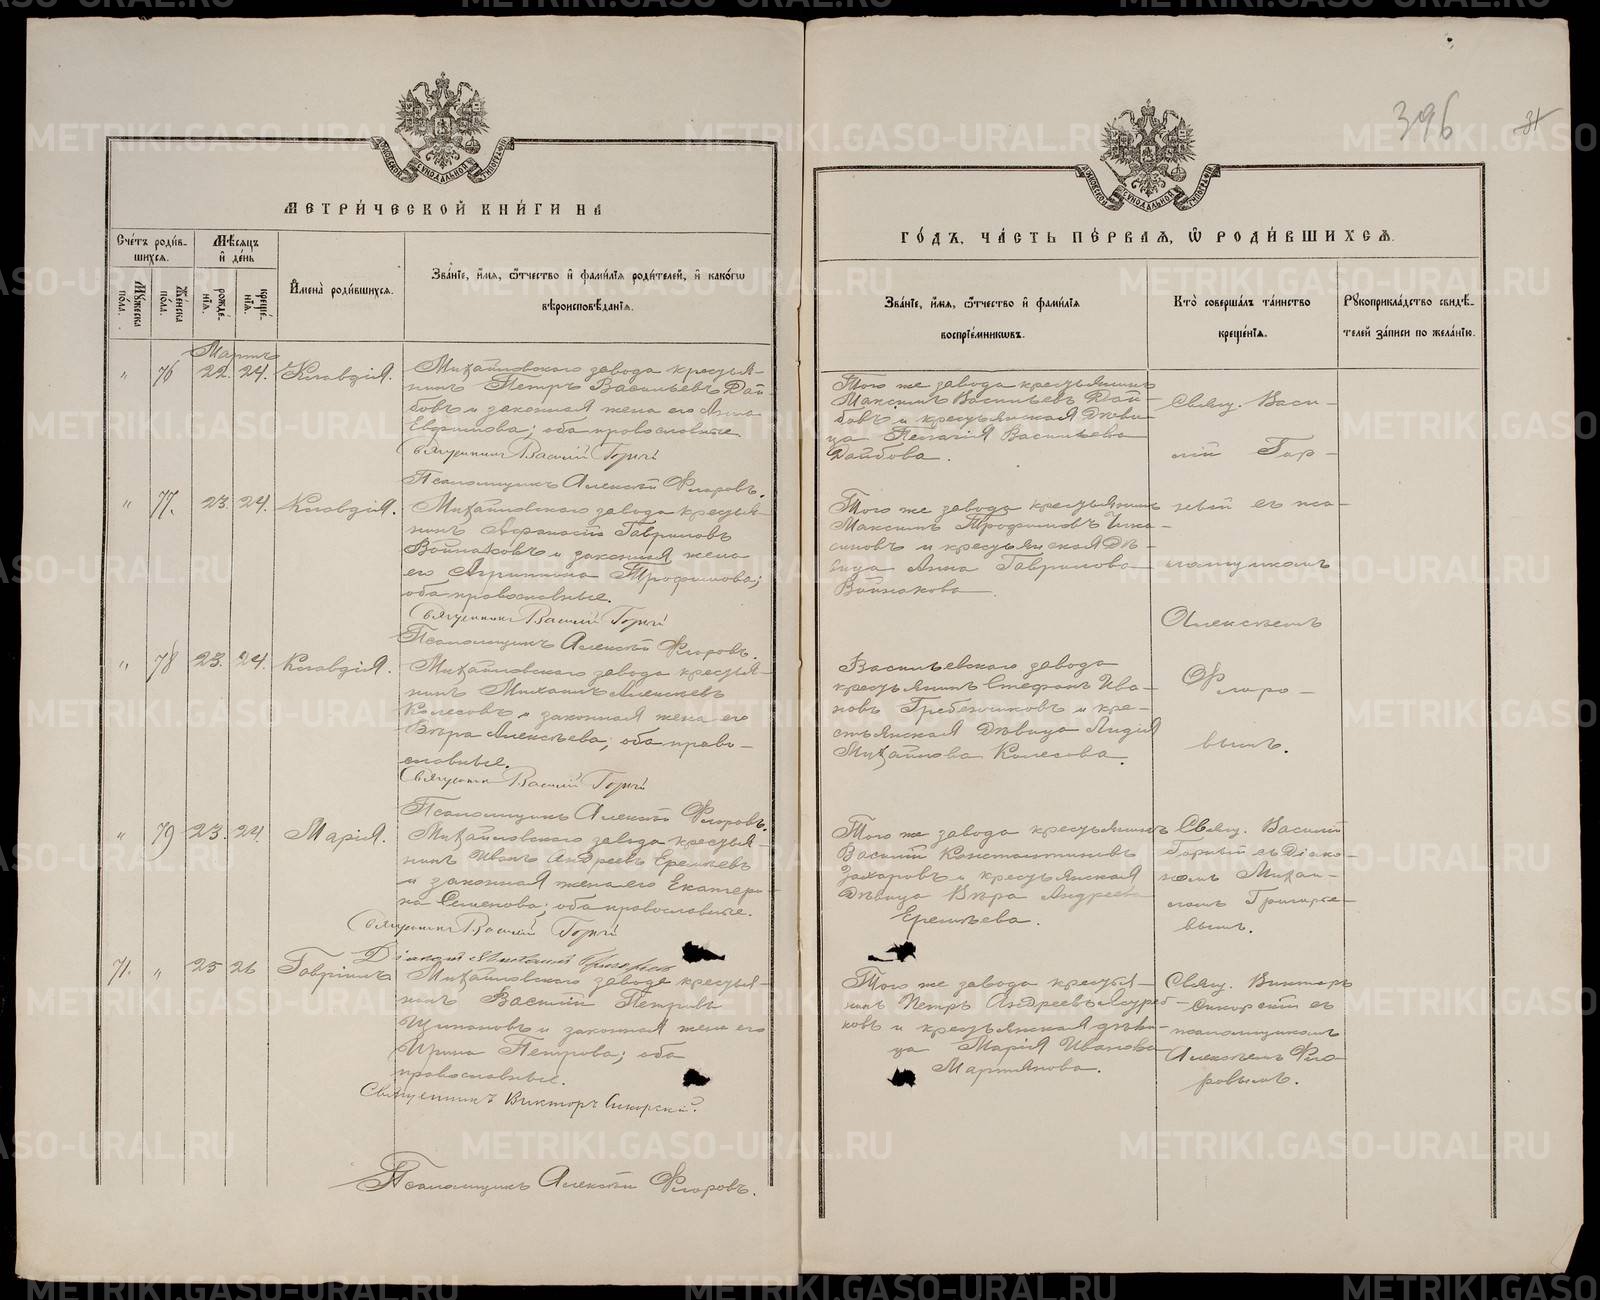 МЕТРИ́ЧЕСКОЙ КНИ́ГИ НА
Сче́тъ роди́в-
шихся.
Мѣсяцъ
и҆ де́нь
Му́жеска
по́ла.
Же́нска
по́ла.
рожде́-
нїѧ.
креще́-
нїѧ.
И҆мена̀ роди́вшихся.
Зва́нїе, и҆́мя, ѻ҆́тчество и҆ фами́лїя роди́телей, и҆ како́гѡ
вѣроисповѣ́данїя.
Мартъ
" 76 22. 24. Клавдія.
Михайловскаго завода крестья-
нинъ Петръ Васильевъ Дай-
бовъ и законная жена его Анна
Ефримова; оба православные
Священникъ Василій Горный
Псаломщикъ Алексѣй Флоровъ.
" 77. 23. 24. Клавдія.
Михайловскаго завода крестья-
нинъ Афанасій Гавриловъ
Войнаковъ и законная жена
его Агриппина Трофимова;
оба православные.
Священникъ Василій Горный
Псаломщикъ Алексѣй Флоровъ.
" 78 23. 24. Клавдія.
Михайловскаго завода крестья-
нинъ Михаилъ Алексѣевъ
Колесовъ и законная жена его
Вѣра Алексѣева; оба право-
славные.
Священникъ Василій Горный
Псаломщикъ Алексѣй Флоровъ.
" 79 23. 24. Марія.
Михайловскаго завода крестья-
нинъ Иванъ Андреевъ Еремѣевъ
и законная жена его Екатери-
на Семенова; оба православные.
Священникъ Василій Горный
Діаконъ
71. " 25 26 Гавріилъ
Михайловскаго завода крестья-
нинъ Василій Петровъ
Щипановъ и законная жена его
Ирина Петрова; оба
православные.
Священникъ Викторъ Сикорскій.
Псаломщикъ Алексѣй Флоровъ.
396 31
ГО́ДЪ, ЧА́СТЬ ПЕ́РВАЯ, Ѡ҆ РОДИ́ВШИХСЯ.
Зва́нїе, и҆́мя, ѻ҆́тчество и҆ фами́лїя
воспрїе́мникѡвъ.
Кто̀ соверша́лъ та́инство
креще́нїя.
Рꙋкоприкла́дство свидѣ́-
телей за́писи по жела́нїю.
Того же завода крестьянинъ
Максимъ Васильевъ Дай-
бовъ и крестьянская дѣви-
ца Пелагія Васильева
Дайбова.
Свящ. Васи-
лій Гор-
Того же завода крестьянинъ
Максимъ Трофимовъ
и крестьянская дѣ-
вица Анна Гаврилова
Войнакова.
ный съ пса-
ломщикомъ
Алексѣемъ
Васильевскаго завода
крестьянинъ Стефанъ Ива-
новъ Гребенчиковъ и кре-
стьянская дѣвица Лидія
Михайлова Колесова.
Флоро-
вымъ.
Того же завода крестьянинъ
Василій Константиновъ
Захаровъ и крестьянская
дѣвица Вѣра Андреева
Еремѣева.
Свящ. Василій
Горный съ діако-
номъ Михаи-
ломъ Григорье-
вымъ.
Того же завода крестья-
нинъ Петръ Андреевъ
и крестьянская дѣви-
ца Марія Иванова
Мартьянова.
Свящ. Викторъ
Сикорскій съ
псаломщикомъ
Алексѣемъ Фло-
ровымъ.
METRIKI.GASO-URAL.RU